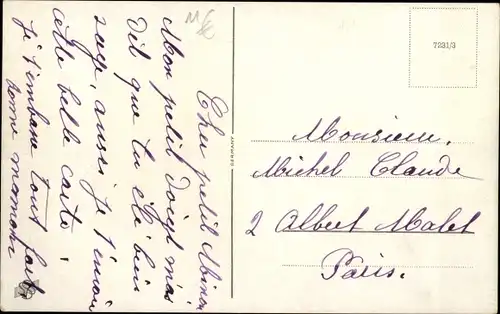 Cher petit Minou
Mon petit doigt m'as
dit que tu été bien
sage, aussi je t'envoi
cette belle carte.
Je t'embrasse tout fort
bonne maman
GERMANY
7231/3
Monsieur,
Michel Claude
2 Albert Malet
Paris.